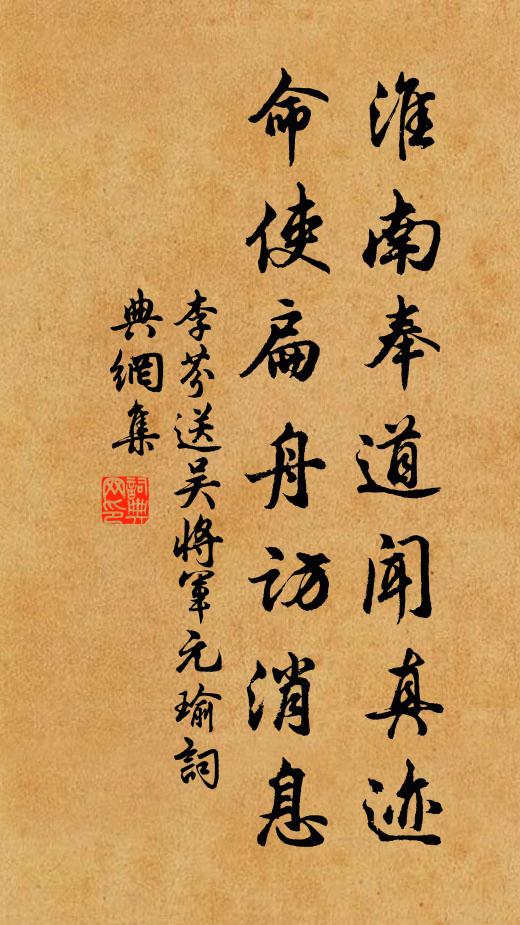 淮南奉道闻真迹
命使扁舟访消息
李芬送吴将军元瑜词
典網集
詞典网印